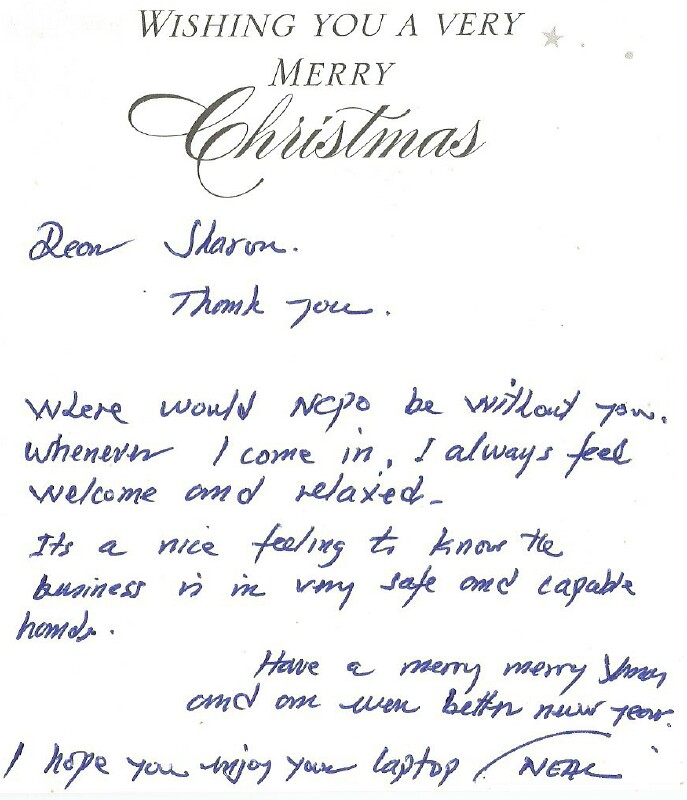 WISHING YOU A VERY
MERRY
Christmas
Dear Sharon.
Thank you.
Where would NCPO be without you.
Whenever I come in, I always feel
welcome and relaxed.
Its a nice feeling to know the
business is in very safe and capable
hands.
Have a merry merry Xmas
and an even better new year.
I hope you enjoy your laptop NEAL